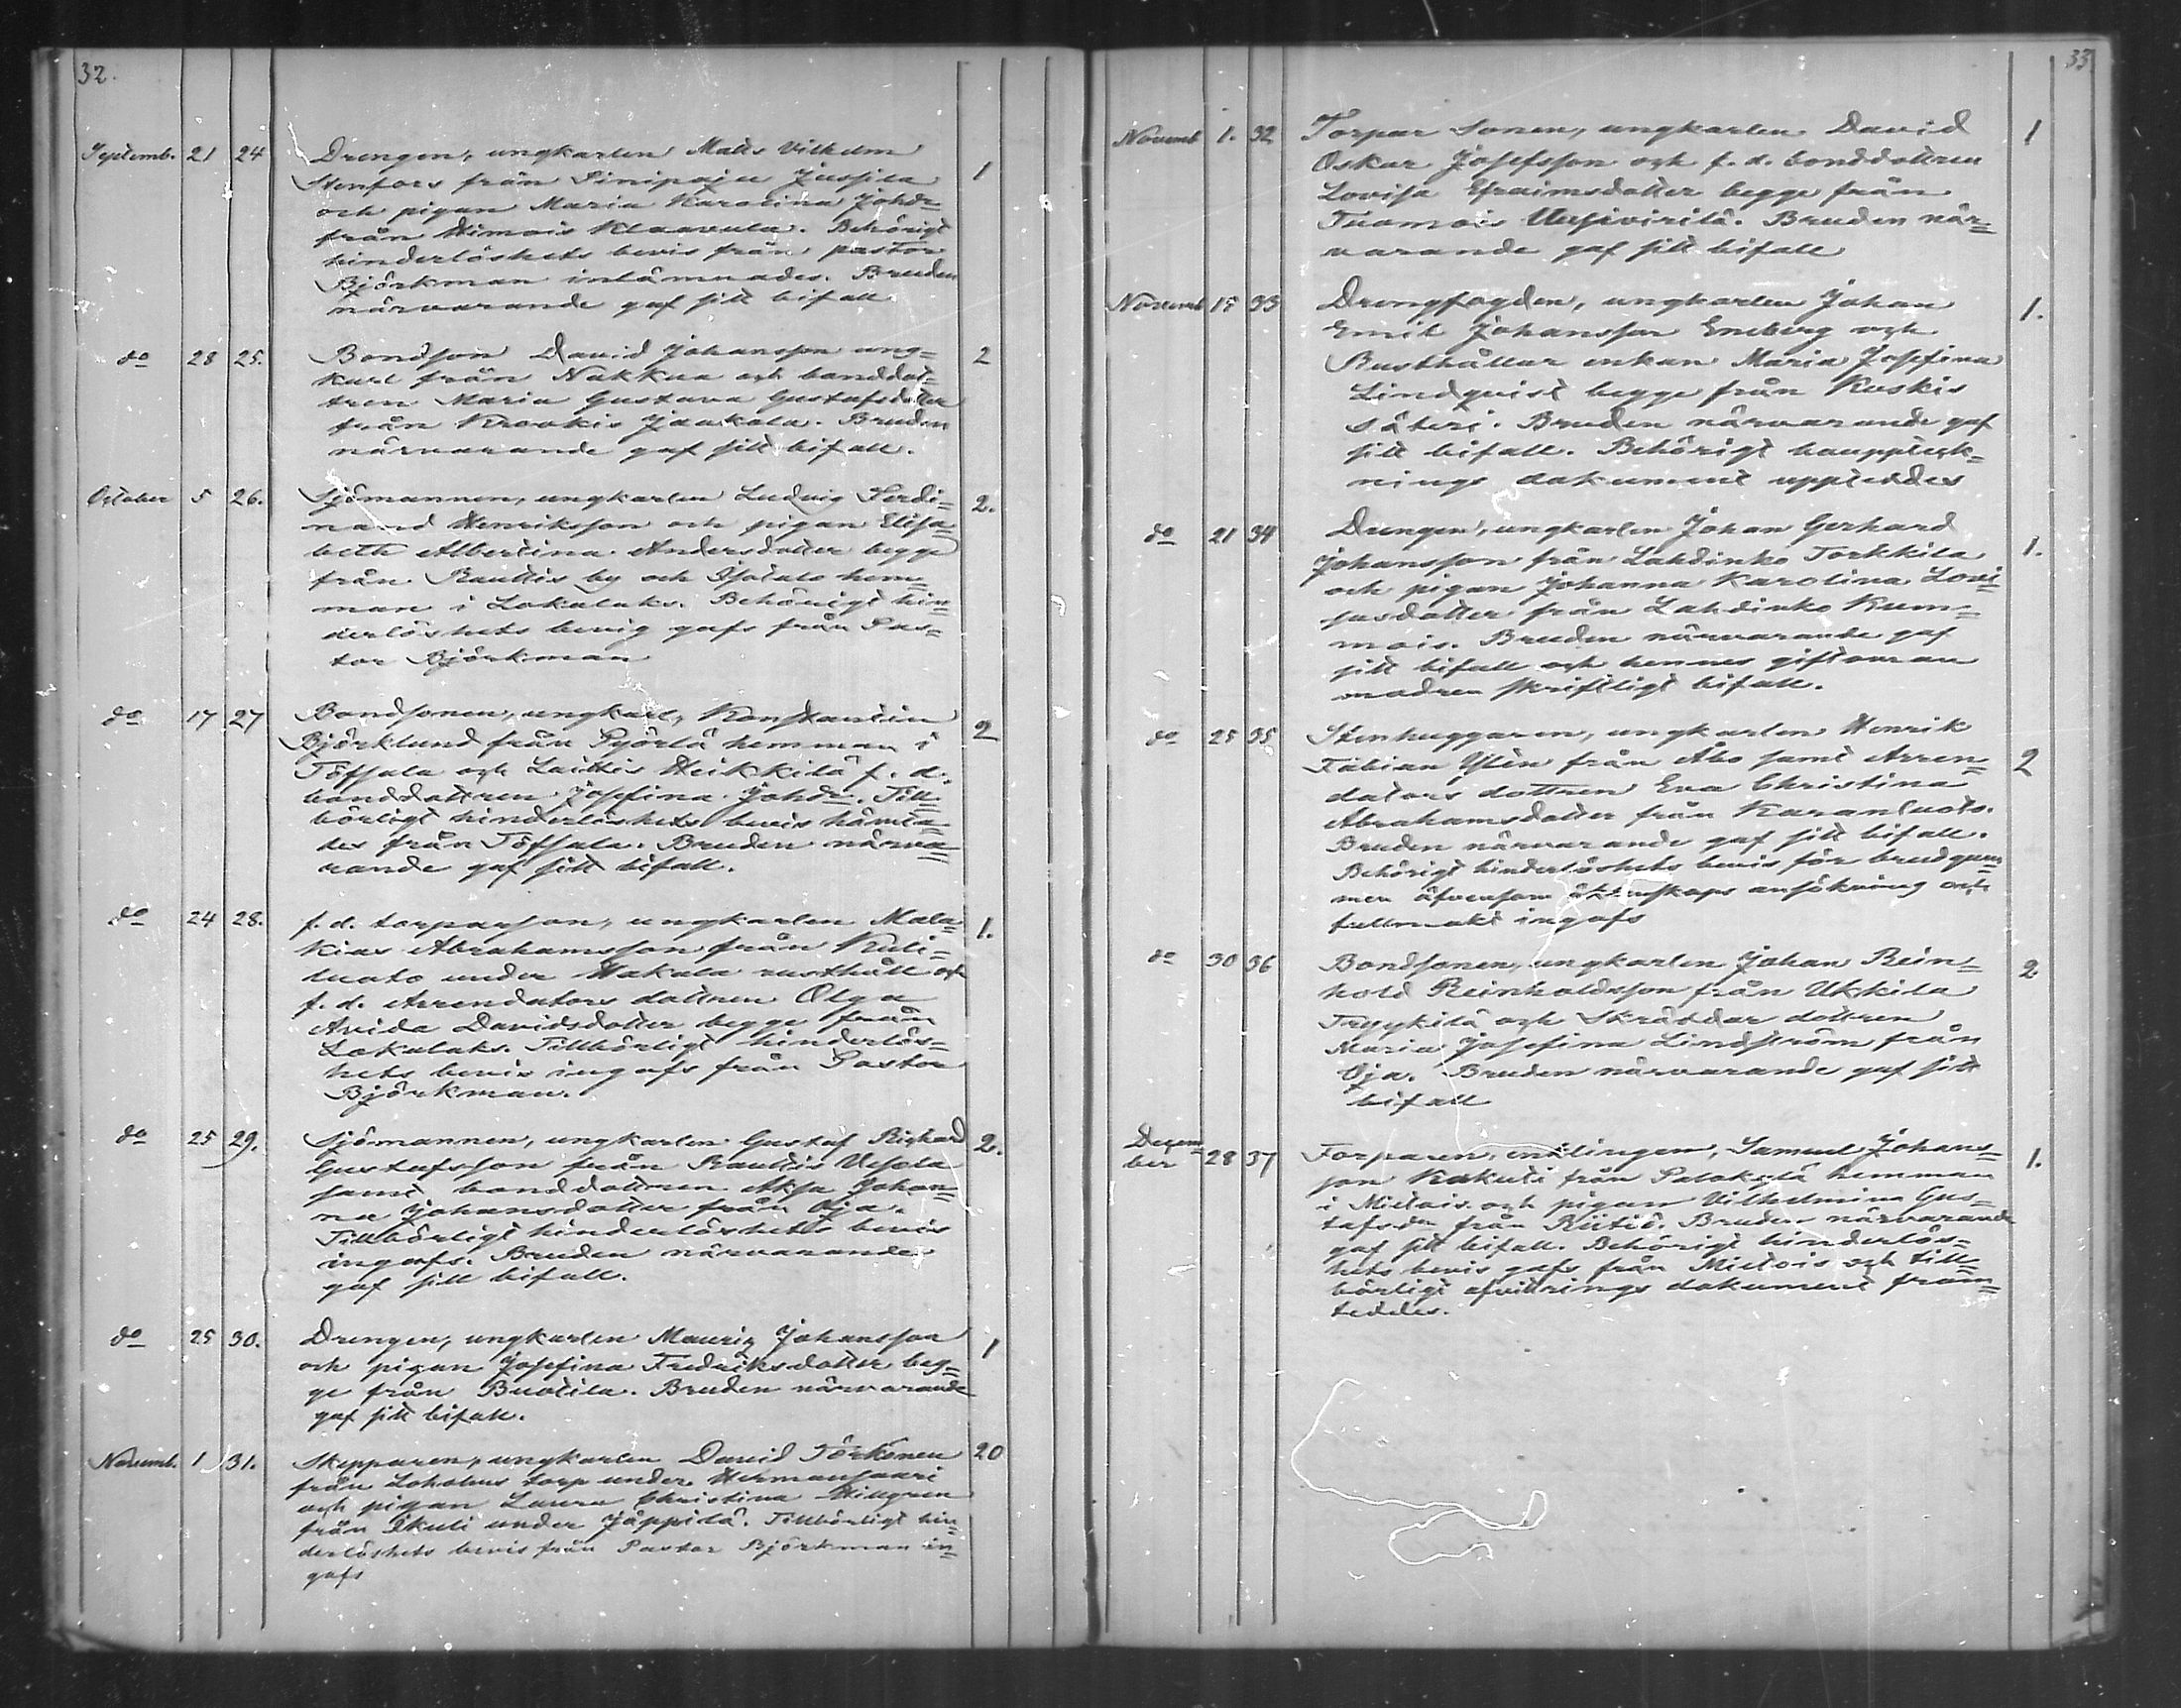 32.
Septemb. 21 24 Drengen, ungkarlen Matts Vilhelm 1
Stenfors från Sinipaju Jussila
och pigan Maria Karolina Johdr
från Himois Klaavula. Behörigt
hinderlöshets bevis från pastor
Björkman inlämnades. Bruden
närvarande gaf sitt bifall
do 28 25. Bondson David Johansson ung= 2
karl från Nakkua och banddot=
tren Maria Gustava Gustafsdotter
från Krookis Jaakola. Bruden
närvarande gaf sitt bifall.
October 5 26. Sjömannen, ungkarlen Ludvig Ferdi= 2.
nand Henriksson och pigan Elisa=
beth Albertina Andersdotter begge
från Rauttis by och Isotalo hem=
man i Lokalaks. Behörigt hin=
derlöshets bevig gafs från Pas=
tor Björkman
do 17 27 Bondsonen, ungkarl, Konstantin 2
Björklund från Pyörlä hemman i
Töfsala och Laittis Heikkilä f. d.
banddottren Josefina Johdr. Till=
börligt hinderlöshets bevis hämta=
des från Töfsala. Bruden närva=
rande gaf sitt bifall.
do 24 28. f. d. torparson, ungkarlen Mala= 1.
kias Abrahamsson från Kuli=
luoto under Hakala rusthåll och
f. d. Arrendators dottren Olga
Avida Davidsdotter begge från
Lokalaks. Tillbörligt hinderlös=
hets bevis ingafs från Pastor
Björkman.
do 25 29. Sjömannen, ungkarlen Gustaf Rickard 2.
Gustafsson från Rauttis Uhsola
samt banddottren Aksa Johan=
na Johansdotter från Oja.
Tillbörligt hinderlöshets bevis
ingafs. Bruden närvarande
gaf sitt bifall.
do 25 30. Drengen, ungkarlen Mauriz Johansson 1
och pigan Josefina Fredriksdotter beg=
ge från Buotila. Bruden närvarande
gaf sitt bifall.
Novemb. 1 31. Skepparen, ungkarlen David Törkönen 20
från Loholms torp under Hermansaari
och pigan Laura Christina Hillgren
från Ikuli under Jäppilä. Tillbörligt hin=
derlöshets bevis från Pastor Björkman in=
gafs
33
Novemb 1. 32 Torpar sonen, ungkarlen David 1
Oskar Josefsson och f. d. bonddottren
Lovisa Efraimsdotter begge från
Tuomois Uusivirilä. Bruden när=
varande gaf sitt bifall
Novemb 15 33 Drengfogden, ungkarlen Johan 1.
Emil Johansson Eneberg och
Rusthållar enkan Maria Josefina
Lindqvist begge från Koskis
säteri. Bruden närvarande gaf
sitt bifall. Behörigt bouppteck=
nings dokument uppteddes
do 21 34 Drengen, ungkarlen Johan Gerhard 1.
Johansson från Lahdinko Torkkila
och pigan Johanna Karolina Lovi=
sasdotter från Lahdinko Kum=
mois. Bruden närvarande gaf
sitt bifall och hennes giftoman
modren skriftligt bifall.
do 25 35 Stenhuggaren, ungkarlen Henrik 2
Fabian Ylén från Åbo samt Arren=
dators dottren Eva Christina
Abrahamsdotter från Karanluoto.
Bruden närvarande gaf sitt bifall.
Behörigt hinderlöshets bevis för brudgum=
men äfvensom äktenskaps ansökning och
fullmakt ingafs
do 30 36 Bondsonen, ungkarlen Johan Rein= 2
hold Reinholdsson från Ukkila
Tryykilä och Skräddar dottren
Maria Josefina Lindström från
Oja. Bruden närvarande gaf sitt
bifall
Decem=
ber 28 37 Torparen, enklingen, Samuel Johans= 1.
son Kakuli från Palokylä hemman
i Mietois och pigan Vilhelmina Gus=
tafsdr från Riitiö. Bruden närvarande
gaf sitt bifall. Behörigt hinderlös=
hets bevis gafs från Mietois och till=
börligt afvittrings dokument fram=
teddes.